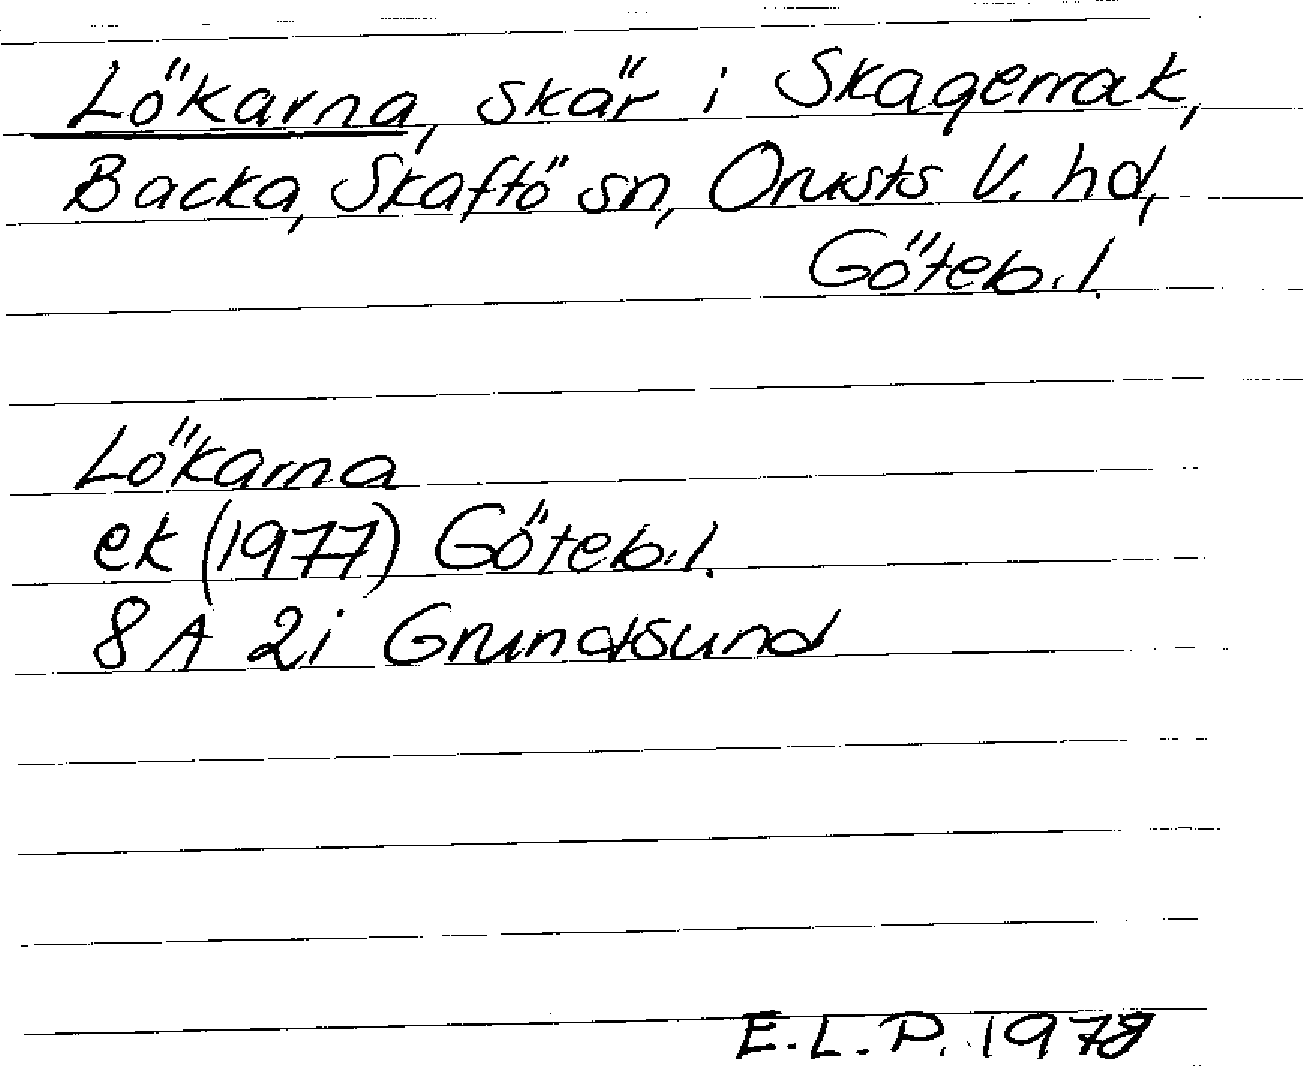 Lökarna, skär i Skagerrak,
Backa, Skaftö sn, Orusts V. hd,
Göteb.l.
Lökarna
ek (1977) Göteb.l.
8A 2i Grundsund
E.L.P. 1978